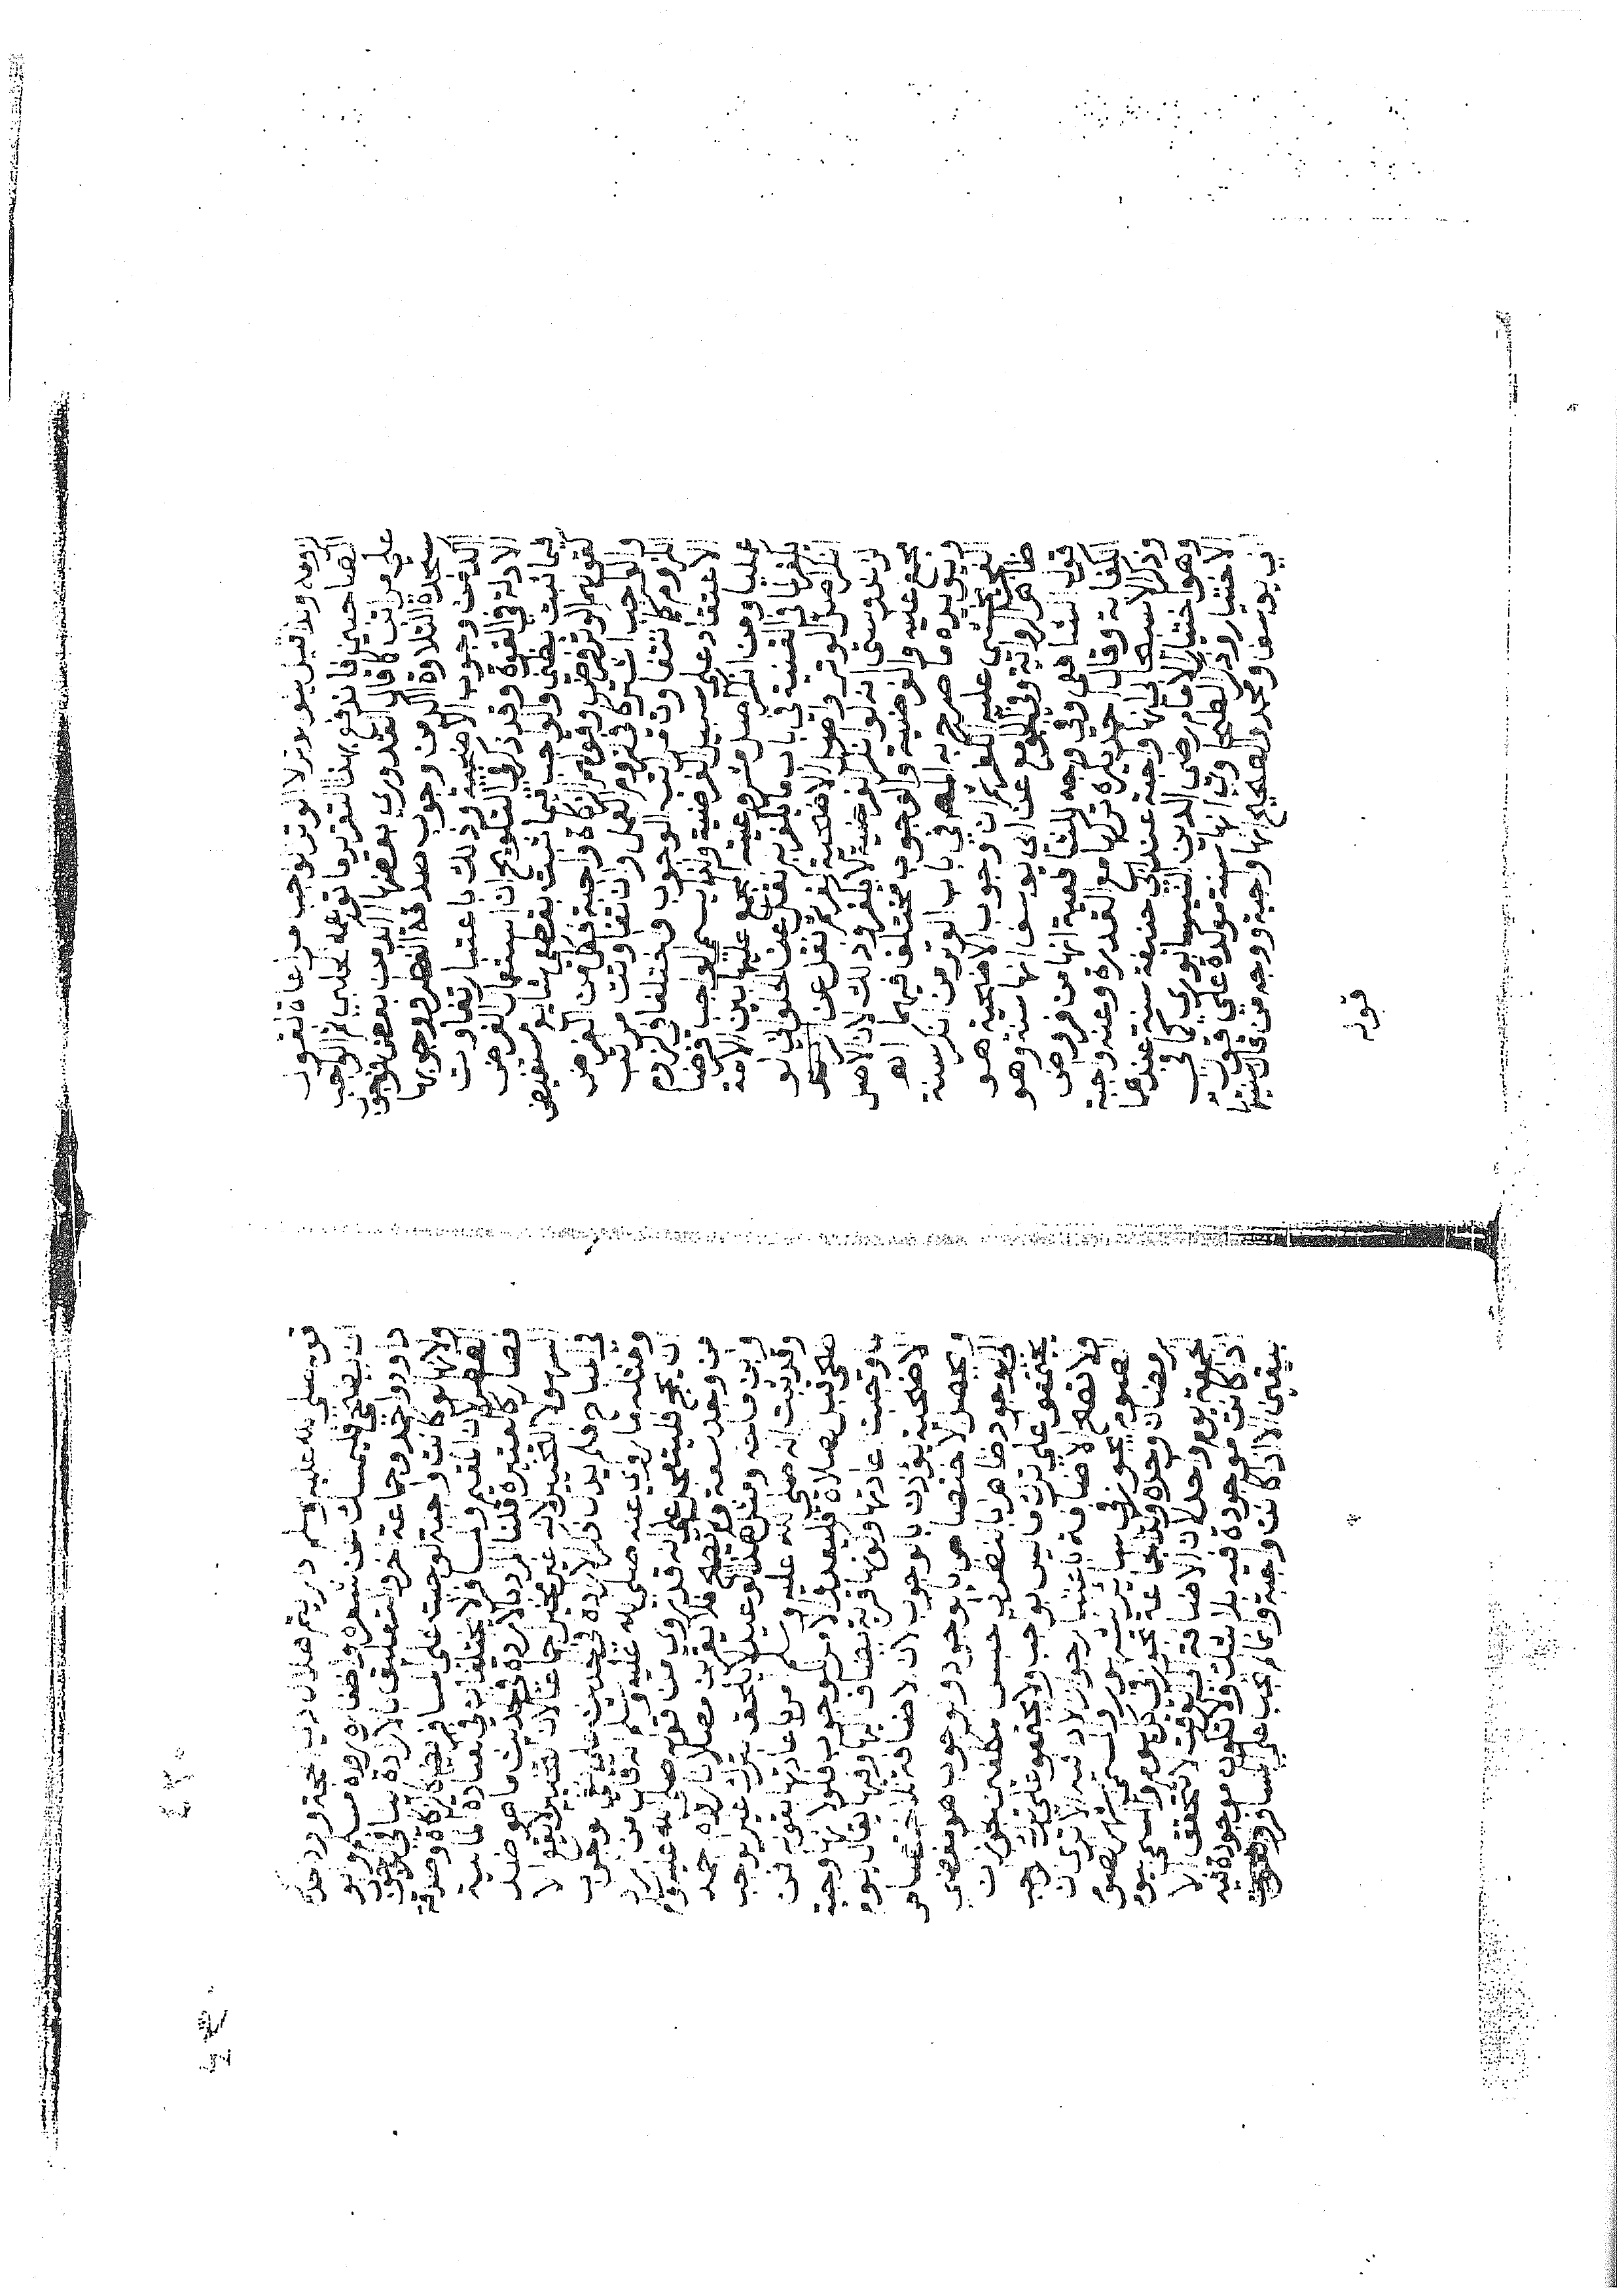 لزومه ولذا قيل ينوي بوتره الوتر لا الواجب مراعاة لقول
الصاحبين فاندفع بهذا التقرير ما توهمه الحلبي ثم الواجب
على مراتب كما قال القدوري بعضها اكد من بعض فوجوب
سجدة التلاوة اكد من وجوب صدقة الفطر ووجوبها
اكد من وجوب الاضحية وذلك باعتبار تفاوت
الادلة في القوة وقد ذكر في التلويح ان استعمال الفرض
فيما ثبت بظني والواجب فيما ثبت بقطعي شايع مستفيض
كقولهم الوتر فرض وقولهم الزكاة واجبة فكل من الفرض
والواجب اشتركا في لزوم العمل وان تفاوتت مراتب
اللزوم كما تتفاوت مراتب الوجوب واختلفا في لزوم
الاعتقاد على سبيل الفرضية ولذا يسمى الواجب فرضا
عمليا ومن انكر اصل مشروعيته المجمع عليها بين الامة
يكفر لما في القنية في باب ما يكفر به نقلا عن الحلواني لو
انكر اصل الوتر واصل الاضحية كفر ثم نقل عن
الزندوستي انه لو انكر الفرضية لا يكفر وذلك لان الاصل
مجمع عليه والفرضية والوجوب مختلف فيهما اه
ويؤيده ما صرح به المص في باب الوتر من انكر سنة
يخشى عليه الكفر ثم ان وجوب الاضحية هو
ظاهر الرواية وفي الجوامع عن ابي يوسف انها سنة وهو
قول الشافعي وفي وجه للشافعية انها من فروض
الكفاية وقال احمد يكره تركها مع القدرة وعنه واجبة
وذكر الاسبيجابي انها واجبة عند ابي حنيفة سنة عندهما
وهو اختيار الامام رضي الدين النيسابوري كما في
الاختيار وذكر الطحاوي انها سنة مؤكدة على قول
ابي يوسف ومحمد والصحيح انها واجبة ووجه من قال بسنيتها
قوله
قوله صلى الله عليه وسلم اذا رايتم هلال ذي الحجة واراد احدكم
ان يضحي فليمسك عن شعره واظفاره رواه مسلم وابو
داوود واحمد وجماعة اخر والتعليق بالارادة ينافي الوجوب
ولانها لو كانت واجبة لوجبت على المسافر كالزكاة وصدقة
الفطر لان المقيم والمسافر لا يختلفان في العبادة المالية
فصار كالعتيرة قلنا المراد بالارادة في الحديث ما هو ضد
السهو لا التخيير لانه غير مخير اجماعا لان التخيير لا يقع الا
في المباح فلم يدل ذكر الارادة في الحديث على نفي الوجوب
ومثله ما روي عنه صلى الله عليه وسلم انه قال من اراد
ان يحج فليتعجل على انه قد روي من قوله صلى الله عليه وسلم
من وجد سعة ولم يضح فلا يقربن مصلانا رواه احمد
وابن ماجه ومثل هذا الوعيد لا يلحق بترك غير الواجب
وقد ثبت انه صلى الله عليه وسلم امر باعادتها بقوله من
ضحى قبل صلاة فليعد والامر للوجوب فلولا انها واجبة
لما وجبت اعادتها ولانها قربة يضاف اليها وقتها يقال يوم
الاضحى وانه يؤذن بالوجوب لان الاضافة للاختصاص
ويحصل الاختصاص بالوجود والوجوب هو المفضي
الى الوجود ظاهرا بالنظر الى جنس المكلفين لجواز ان
يجتمعوا على ترك ما ليس بواجب ولا يجتمعوا على ترك الواجب
ولا تصح الاضافة باعتبار جواز الاداء فيه الا ترى ان
الصوم يجوز في سائر الشهور والمسمى شهر الصوم
رمضان وحده وكذا الجماعة تجوز في كل يوم والمسمى يوم
الجمعة يوم واحد لان الاضافة الى الوقت لا تتحقق الا
اذا كانت موجودة فيه بلا شك ولا تكون موجودة فيه
بيقين الا اذا كانت واجبة وانما لم تجب على المسافر